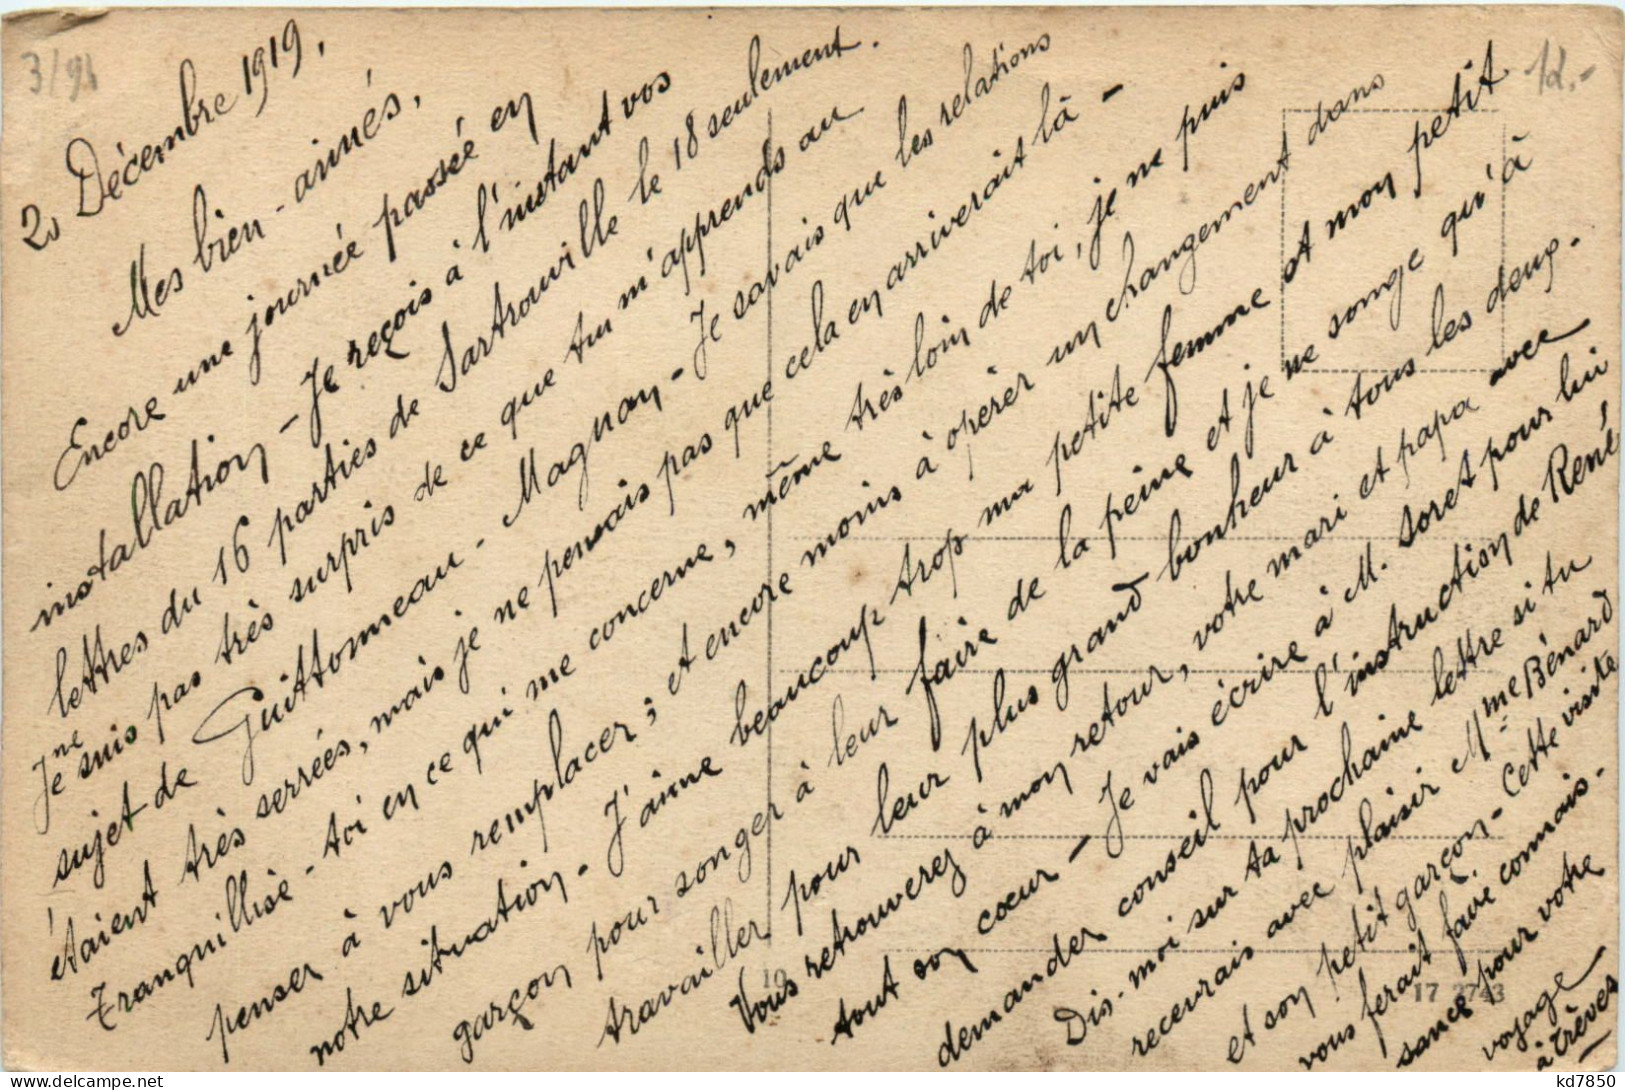 3/94
12.-
2 Décembre 1919.
Mes bien-aimés,
Encore une journée passée en
installation - Je reçois à l'instant vos
lettres du 16 parties de Sartrouville le 18 seulement.
Je ne suis pas très surpris de ce que tu m'apprends au
sujet de Guittomeau - Magnan - Je savais que les relations
étaient très serrées, mais je ne pensais pas que cela en arriverait là -
Tranquillise-toi en ce qui me concerne, même très loin de toi, je ne puis
penser à vous remplacer ; et encore moins à opérer un changement dans
notre situation - J'aime beaucoup trop ma petite femme et mon petit
garçon pour songer à leur faire de la peine et je ne songe qu'à
travailler pour leur plus grand bonheur à tous les deux.
Vous retrouverez à mon retour, votre mari et papa avec
tout son cœur - Je vais écrire à M. Soret pour lui
demander conseil pour l'instruction de René
Dis-moi sur ta prochaine lettre si tu
recevrais avec plaisir Mme Bénard
et son petit garçon - Cette visite
vous ferait faire connais-
sance pour votre
voyage
à Trèves
19
17 2743
kd7850